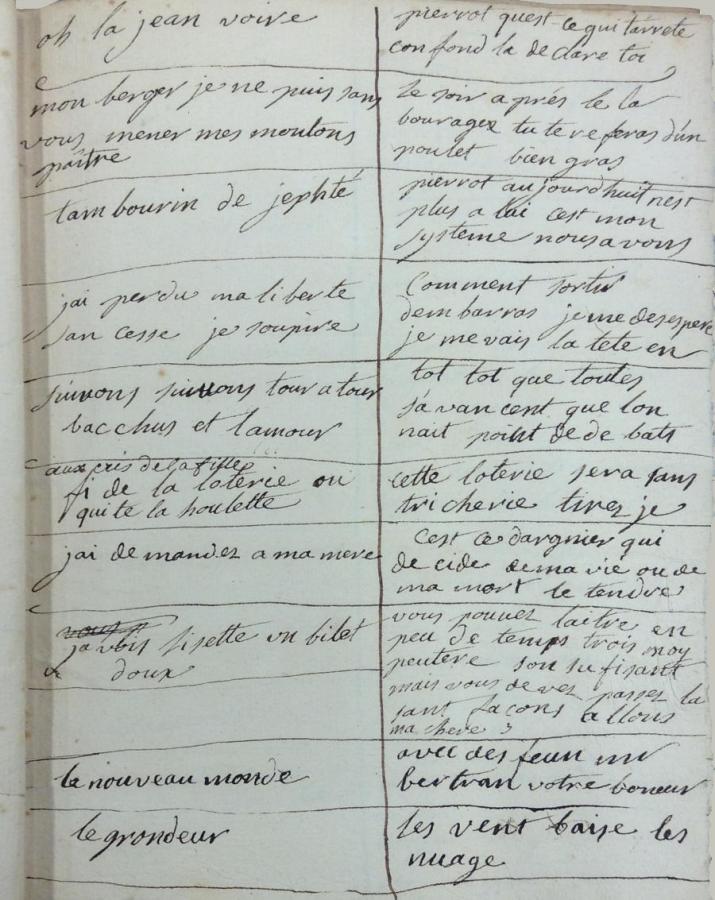 oh la jean voire
pierrot quest ce qui tarrete
confond la declare toi
mon berger je ne puis sans
vous mener mes moutons
paitre
le soir aprés le la
bourages tu te re feras dun
poulet bien gras
tambourin de jephté
pierrot aujourdhuit nest
plus a lui cest mon
systeme nous avons
jai perdu ma liberte
san cesse je soupire
Comment sortir
dem barras je me desespere
je me vais la tete en
suivons suivons tour a tour
bacchus et lamour
tot tot que toutes
sa van cent que lon
nait point de de bats
aux cris de la fille
fi de la loterie ou
quite la houlette
cette loterie sera sans
tricherie tirez je
jai de mandez a ma mere
Cest ce dargnier qui
de cide de ma vie ou de
ma mort le tendre
vous
ja vois lisette un bilet
doux
vous pouvez laitre en
peu de temps trois moy
peutere son sufisant
mais vous devez passez la
sant facons allons
ma chere
le nouveau monde
avec des feun mr
bertran votre boneur
le grondeur
les vent baise les
nuage